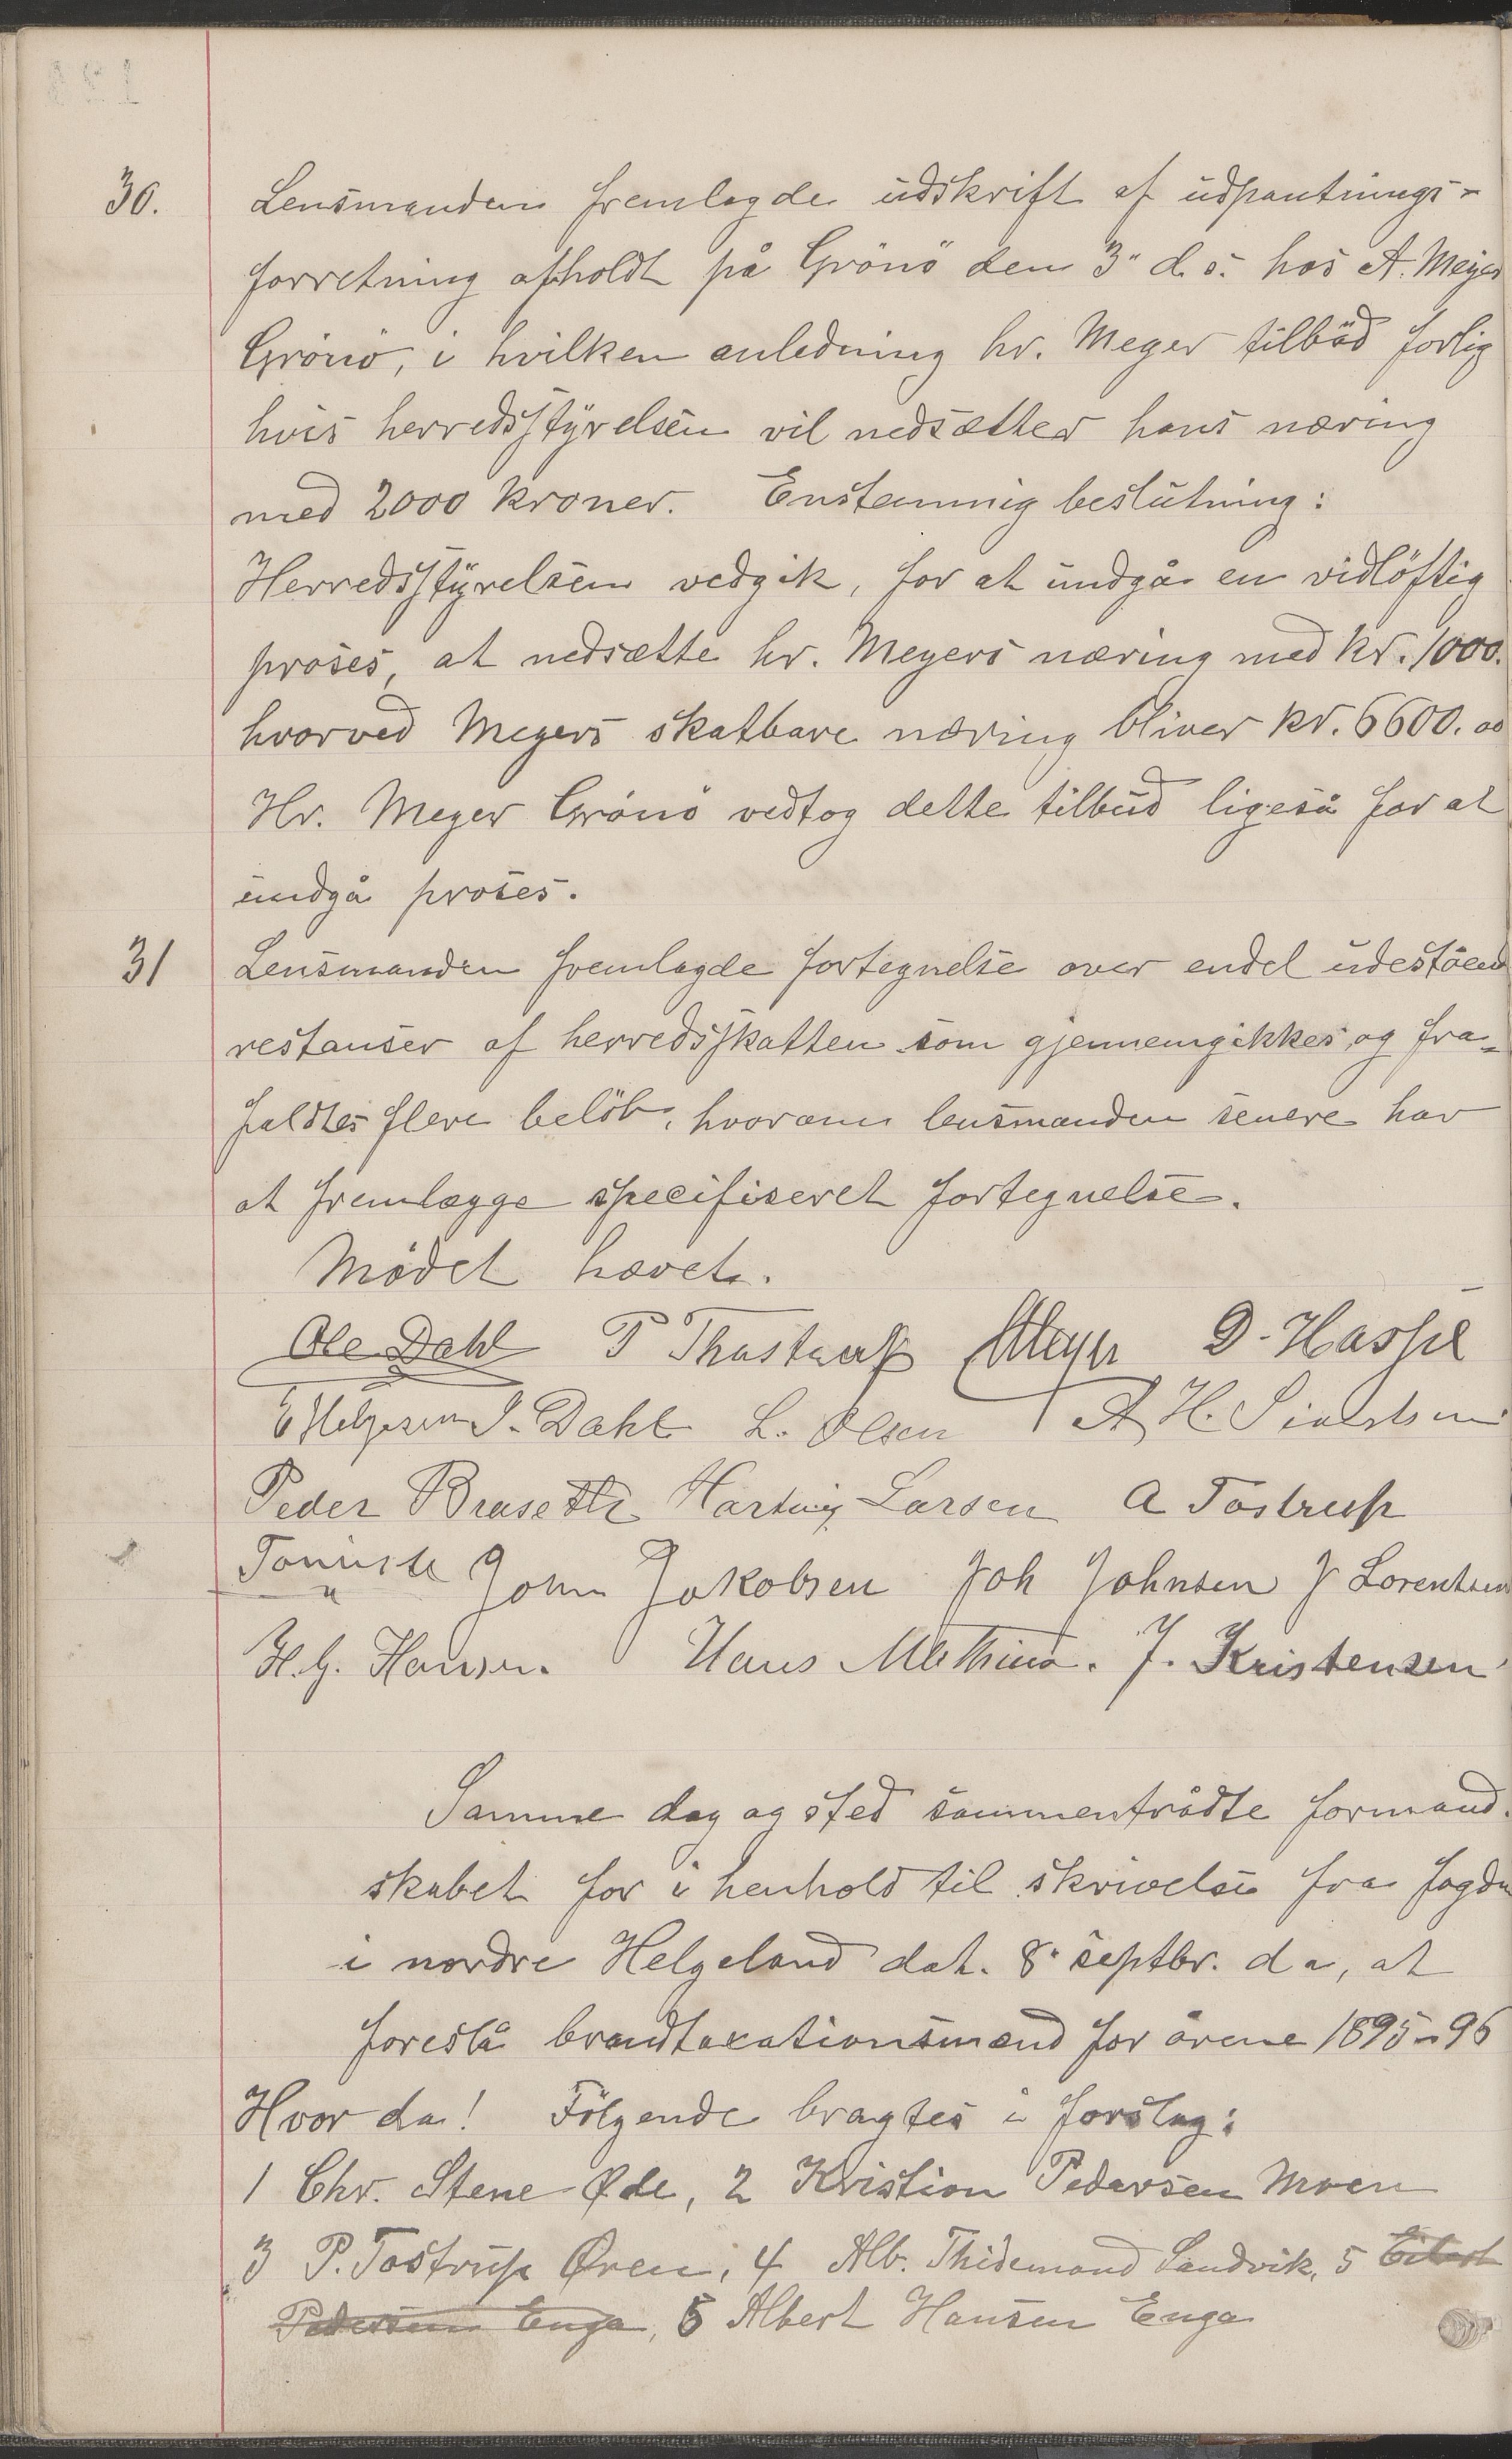 30. Lensmanden fremlagde udskrift af udpantnings-
forretning afholdt på Grönö den 3" d.s. hos A. Meyer
Grönö, i hvilken anledning hr. Meyer tilböd forlig
hvis herredsstyrelsen vil nedsætter hans næring
med 2000 kroner. Enstemmig beslutning:
Herredsstyrelsen vedgik, for at undgå en vidlöftig
proses, at nedsætte hr. Meyers næring med kr. 1000.
hvorved Meyers skatbare næring bliver kr. 6600.00
Hr. Meyer Grönö vedtog dette tilbud ligeså for at
undgå proses.
31 Lensmanden fremlagde fortegnelse over endel udeståend
restanser af herredsskatten som gjennemgikkes og fra-
faldtes flere belöb, hvorom lensmanden senere har
at fremlægge specifiseret fortegnelse.
Mödet hævet.
Ole Dahl P Thostrup AMeyer D. Haspel
E Helgesen J. Dahl L. Olsen A H. Sivertsen
Peder Braseth Hartvig Larsen A Tostrup
John Jakobsen Joh Johnsen J Lorentsen
H. G. Hansen. Hans J. Kristensen
Samme dag og sted sammentrådte formand-
skabet for i henhold til skrivelse fra fogden
i nordre Helgeland dat. 8. septbr. d a, at
foreslå brandtaxationsmænd for årene 1895-96
Hvor da! Fölgende bragtes i forslag:
1 Chr. Stene Øde, 2 Kristian Pedersen Moen
3 P. Tostrup Øren, 4 Alb. Thidemand Sandvik, 5 Eilert
Pedersen Enga, 5 Albert Hansen Enga